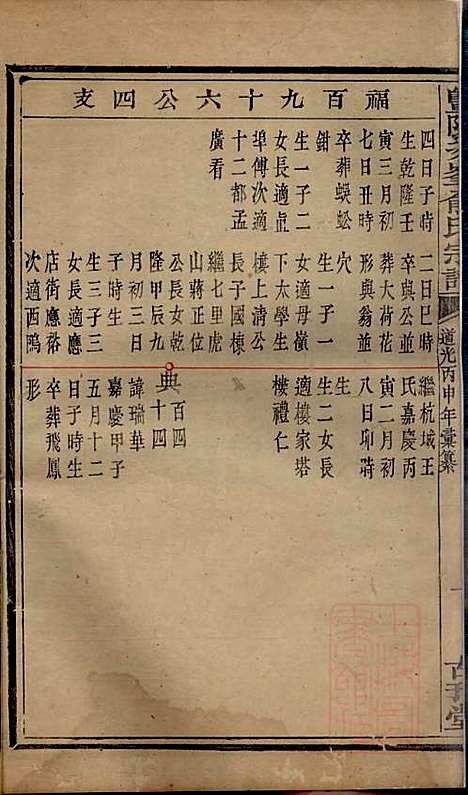 福百九十六公四支
四日子時
生乾隆壬
寅三月初
七日丑時
卒葬蜈蚣
鉗
生一子二
女長適直
埠傅次適
十二都孟
廣看
二日巳時
卒與公並
葬大荷花
形與翁並
穴
生一子一
女適母嶺
下太學生
樓上清公
長子國棟
繼七里虎
山蔣正位
公長女乾
隆甲辰九
月初三日
子時生
生三子三
女長適應
店街應裕
次適西鴫
繼杭城王
氏嘉慶丙
寅二月初
八日卯時
生
生二女長
適樓家塔
樓禮仁
典
百四
十四
諱瑞華
嘉慶甲子
五月十二
日子時生
卒葬飛鳳
形
俞氏宗譜
道光丙申年彙纂